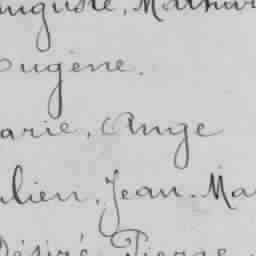 Auguste, Mathur
Eugène.
arie, Ange
ulien, Jean-Ma
Désiré, Pierre